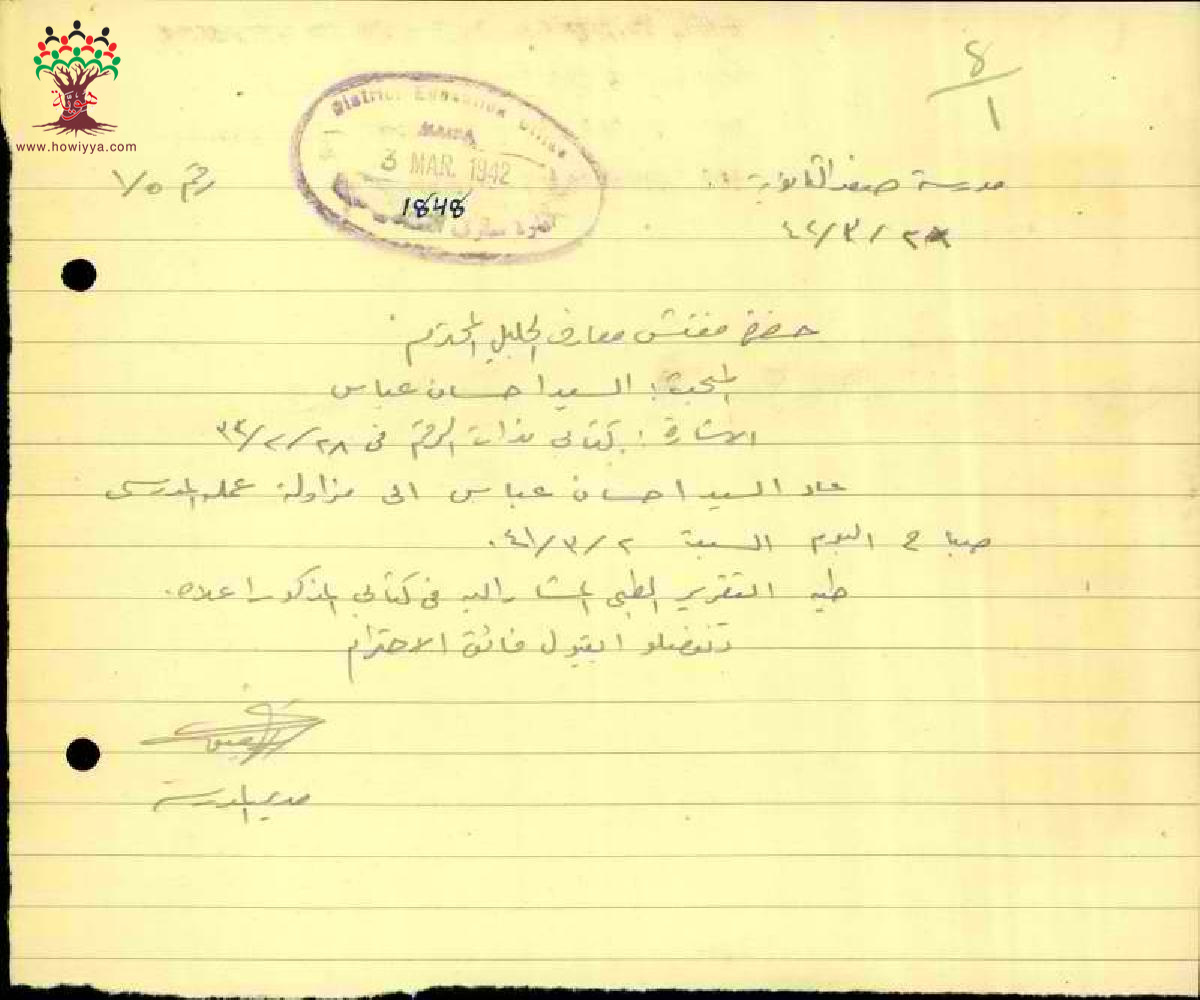 هوية
www.howiyya.com
٨/١
District Education Office
HAIFA
3 MAR. 1942
1848
مدرسة صفد الثانوية
رقم ١/٥
٢/٣/٤٢
حضرة مفتش معارف الجليل المحترم
المبحث: السيد احسان عباس
الاشارة: كتابي ذات الرقم في ٢٨/٢/٤٢
عاد السيد احسان عباس الى مزاولة عمله المدرسي
صباح اليوم السبت ٢/٣/٤٢.
طيه التقرير الطبي المشار اليه في كتابي المذكور اعلاه.
وتفضلوا بقبول فائق الاحترام
مدير المدرسة